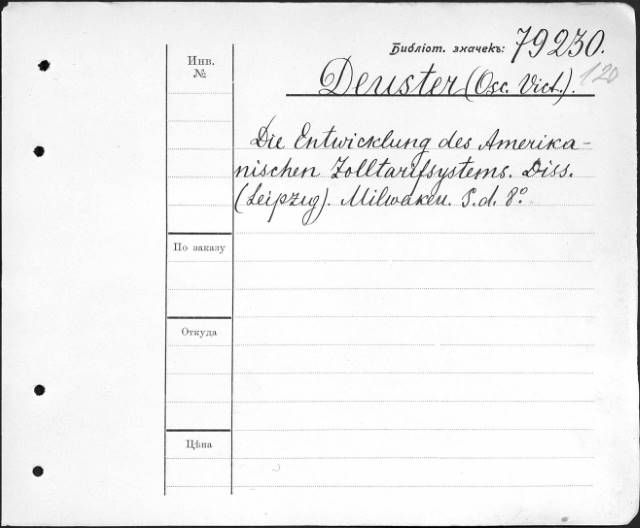 Библіот. значекъ: 79230.
120
Инв.
№
Deuster (Osc. Vict.).
Die Entwicklung des Amerika-
nischen Zolltarifsystems. Diss.
(Leipzug). Milwaken. S.d. 8°
По заказу
Откуда
Цѣна